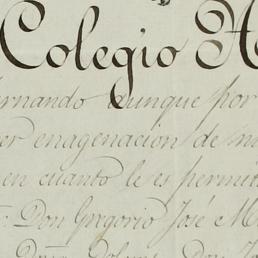 Colegio
ernando aunque por
er enagenacion de
en cuanto le es permit
Don Gregorio José M
Don